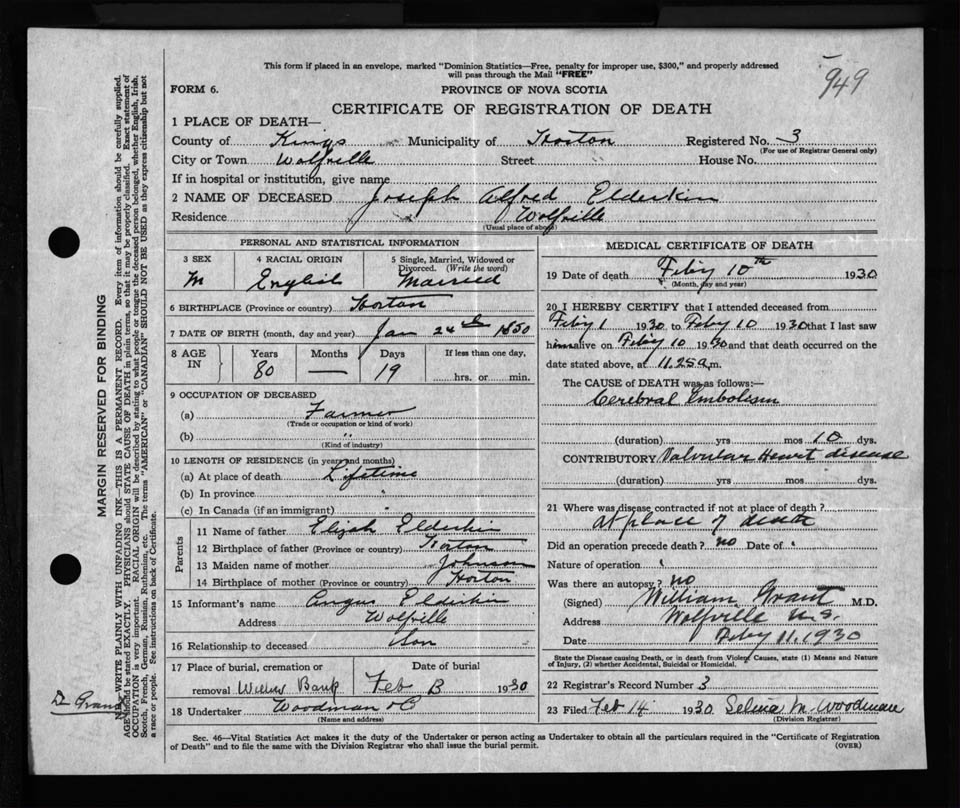 This form if placed in an envelope, marked "Dominion Statistics—Free, penalty for improper use, $300," and properly addressed
will pass through the Mail "FREE"
949
FORM 6.
PROVINCE OF NOVA SCOTIA
CERTIFICATE OF REGISTRATION OF DEATH
1 PLACE OF DEATH—
County of Kings Municipality of Horton Registered No. 3
(For use of Registrar General only)
City or Town Wolfville Street House No.
If in hospital or institution, give name
2 NAME OF DECEASED Joseph Alfred Elderkin
Residence Wolfville
(Usual place of abode)
PERSONAL AND STATISTICAL INFORMATION
3 SEX 4 RACIAL ORIGIN 5 Single, Married, Widowed or
Divorced. (Write the word)
M English Married
6 BIRTHPLACE (Province or country) Horton
7 DATE OF BIRTH (month, day and year) Jan 24th 1850
8 AGE IN Years Months Days If less than one day,
80 — 19 hrs. or min.
9 OCCUPATION OF DECEASED
(a) Farmer
(Trade or occupation or kind of work)
(b) "
(Kind of industry)
10 LENGTH OF RESIDENCE (in years and months)
(a) At place of death Lifetime
(b) In province "
(c) In Canada (if an immigrant) "
Parents
11 Name of father Elijah Elderkin
12 Birthplace of father (Province or country) Horton
13 Maiden name of mother Johnson
14 Birthplace of mother (Province or country) Horton
15 Informant's name Angus Elderkin
Address Wolfville
16 Relationship to deceased Son
17 Place of burial, cremation or Date of burial
removal Willow Bank Feb 1930
18 Undertaker Woodman & C
(Name and address)
MEDICAL CERTIFICATE OF DEATH
19 Date of death Feby 10th 1930
(Month, day and year)
20 I HEREBY CERTIFY that I attended deceased from
Feby 1 1930 to Feby 10 1930 that I last saw
him alive on Feby 10 1930 and that death occurred on the
date stated above, at 11.25 a.m.
The CAUSE of DEATH was as follows:—
Cerebral Embolism
(duration) yrs mos 10 dys.
CONTRIBUTORY Valvular Heart disease
(duration) yrs. mos. dys.
21 Where was disease contracted if not at place of death?
at place of death
Did an operation precede death? no Date of "
Nature of operation "
Was there an autopsy? no
(Signed) William Grant M.D.
Address Wolfville N.S.
Date Feby 11, 1930
State the Disease causing Death, or in death from Violent Causes, state (1) Means and Nature
of Injury, (2) whether Accidental, Suicidal or Homicidal.
22 Registrar's Record Number 3
23 Filed Feb 14 1930 Selina M. Woodman
(Division Registrar)
Sec. 46—Vital Statistics Act makes it the duty of the Undertaker or person acting as Undertaker to obtain all the particulars required in the "Certificate of Registration
of Death" and to file the same with the Division Registrar who shall issue the burial permit.
(OVER)
MARGIN RESERVED FOR BINDING
N.B.—WRITE PLAINLY WITH UNFADING INK—THIS IS A PERMANENT RECORD. Every item of information should be carefully supplied.
AGE should be stated EXACTLY. PHYSICIANS should STATE CAUSE OF DEATH in plain terms, so that it may be properly classified. Exact statement of
OCCUPATION is very important. RACIAL ORIGIN will be described by stating to what people or tongue the deceased person belonged, whether English, Irish,
Scotch, French, German, Russian, Ruthenian, etc. The terms "AMERICAN" or "CANADIAN" SHOULD NOT BE USED as they express citizenship but not
a race or people. See instructions on back of Certificate.
Dr Grant